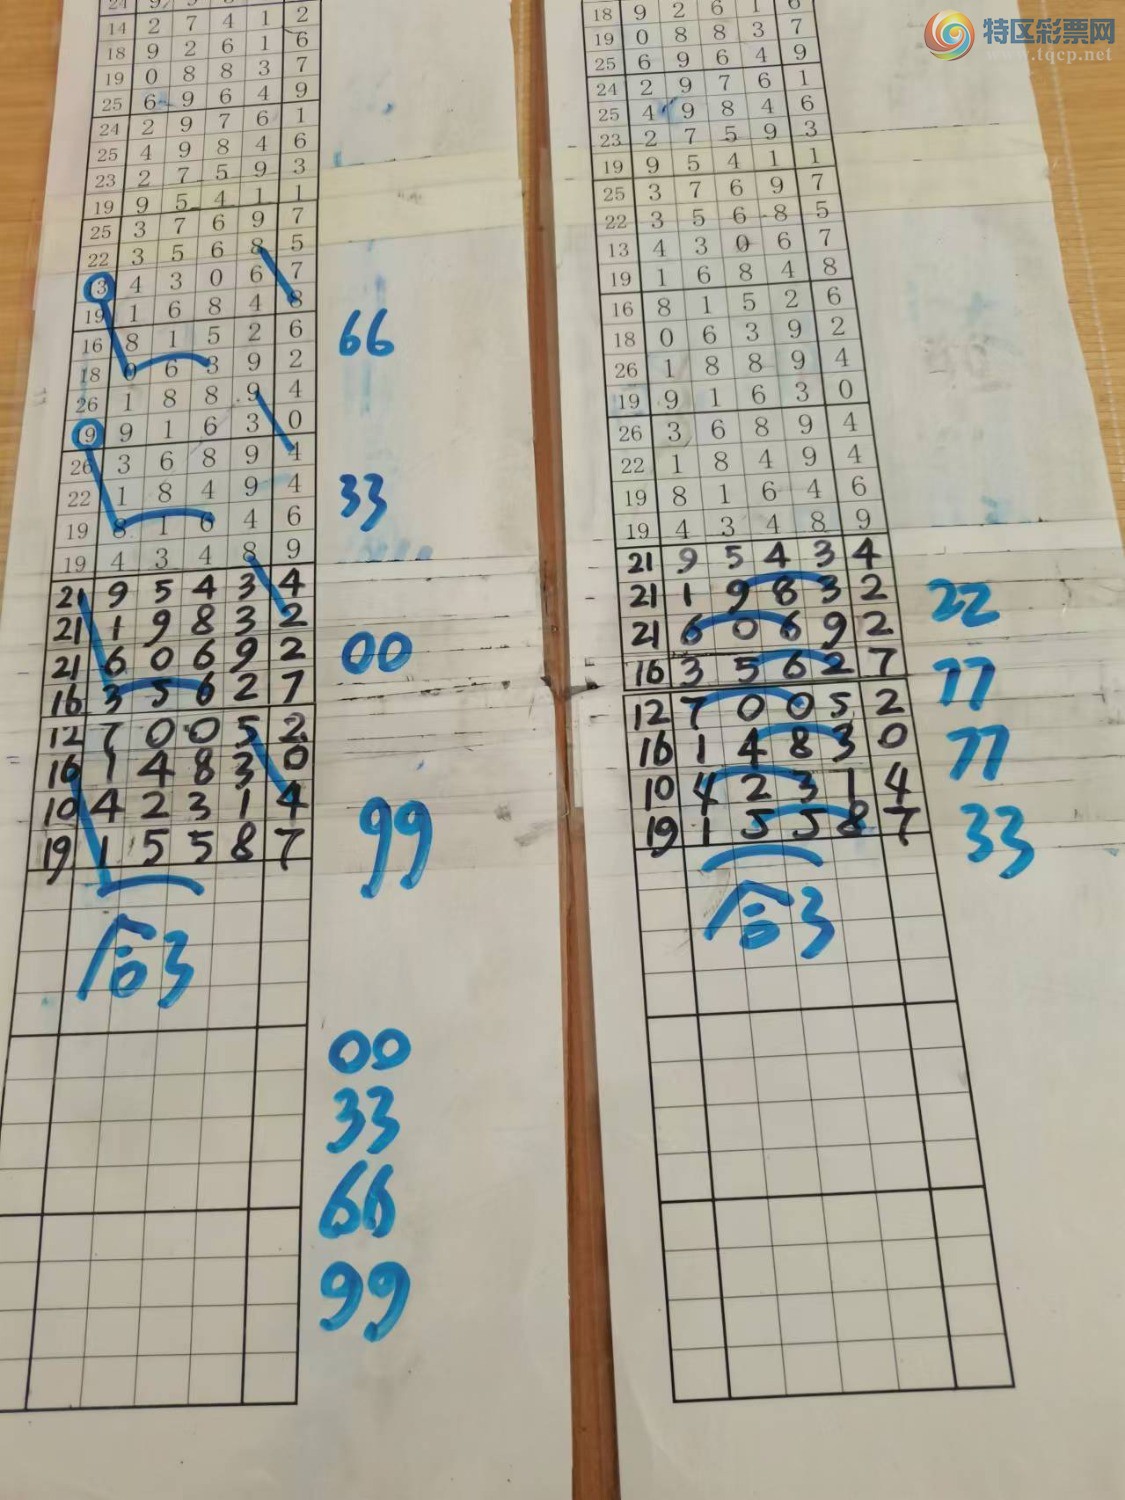 特区彩票网
www.tqcp.net
14 2 7 4 1 2
18 9 2 6 1 6
19 0 8 8 3 7
25 6 9 6 4 9
24 2 9 7 6 1
25 4 9 8 4 6
23 2 7 5 9 3
19 9 5 4 1 1
25 3 7 6 9 7
22 3 5 6 8 5
13 4 3 0 6 7
19 1 6 8 4 8
16 8 1 5 2 6
66
18 0 6 3 9 2
26 1 8 8 9 4
19 9 1 6 3 0
26 3 6 8 9 4
22 1 8 4 9 4
33
19 8 1 6 4 6
19 4 3 4 8 9
21 9 5 4 3 4
21 1 9 8 3 2
21 6 0 6 9 2
00
16 3 5 6 2 7
12 7 0 0 5 2
16 1 4 8 3 0
10 4 2 3 1 4
19 1 5 5 8 7
99
合3
00
33
66
99
18 9 2 6 1 6
19 0 8 8 3 7
25 6 9 6 4 9
24 2 9 7 6 1
25 4 9 8 4 6
23 2 7 5 9 3
19 9 5 4 1 1
25 3 7 6 9 7
22 3 5 6 8 5
13 4 3 0 6 7
19 1 6 8 4 8
16 8 1 5 2 6
18 0 6 3 9 2
26 1 8 8 9 4
19 9 1 6 3 0
26 3 6 8 9 4
22 1 8 4 9 4
19 8 1 6 4 6
19 4 3 4 8 9
21 9 5 4 3 4
21 1 9 8 3 2
22
21 6 0 6 9 2
16 3 5 6 2 7
77
12 7 0 0 5 2
16 1 4 8 3 0
77
10 4 2 3 1 4
19 1 5 5 8 7
33
合3